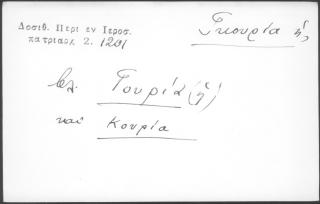 Δοσιθ. Περι εν Ιεροσ.
πατριαρχ 2. 1201
Γκουρία ἡ,
βλ. Γουρία (ἡ)
καὶ Κουρία